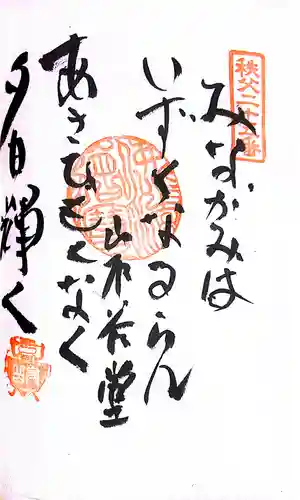 秩父二十五番
みなかみは
いずくなるらん
岩谷堂
あさひもくらく
夕日輝く